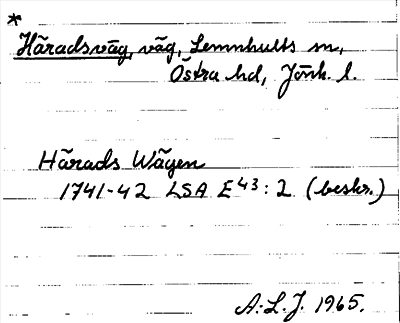 *
Häradsväg, väg, Lemnhults sn,
Östra hd, Jönk. l.
Härads Wägen
1741-42 LSA E43: 2 (beskr.)
A.L.J. 1965.